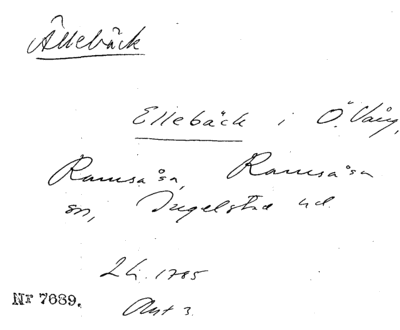 Ällebäck
Ellebäck i Ö. Vång,
Ramsåsa, Ramsåsa
sn, Ingelstad hd.
Lh. 1785
Nr 7689. Akt 3